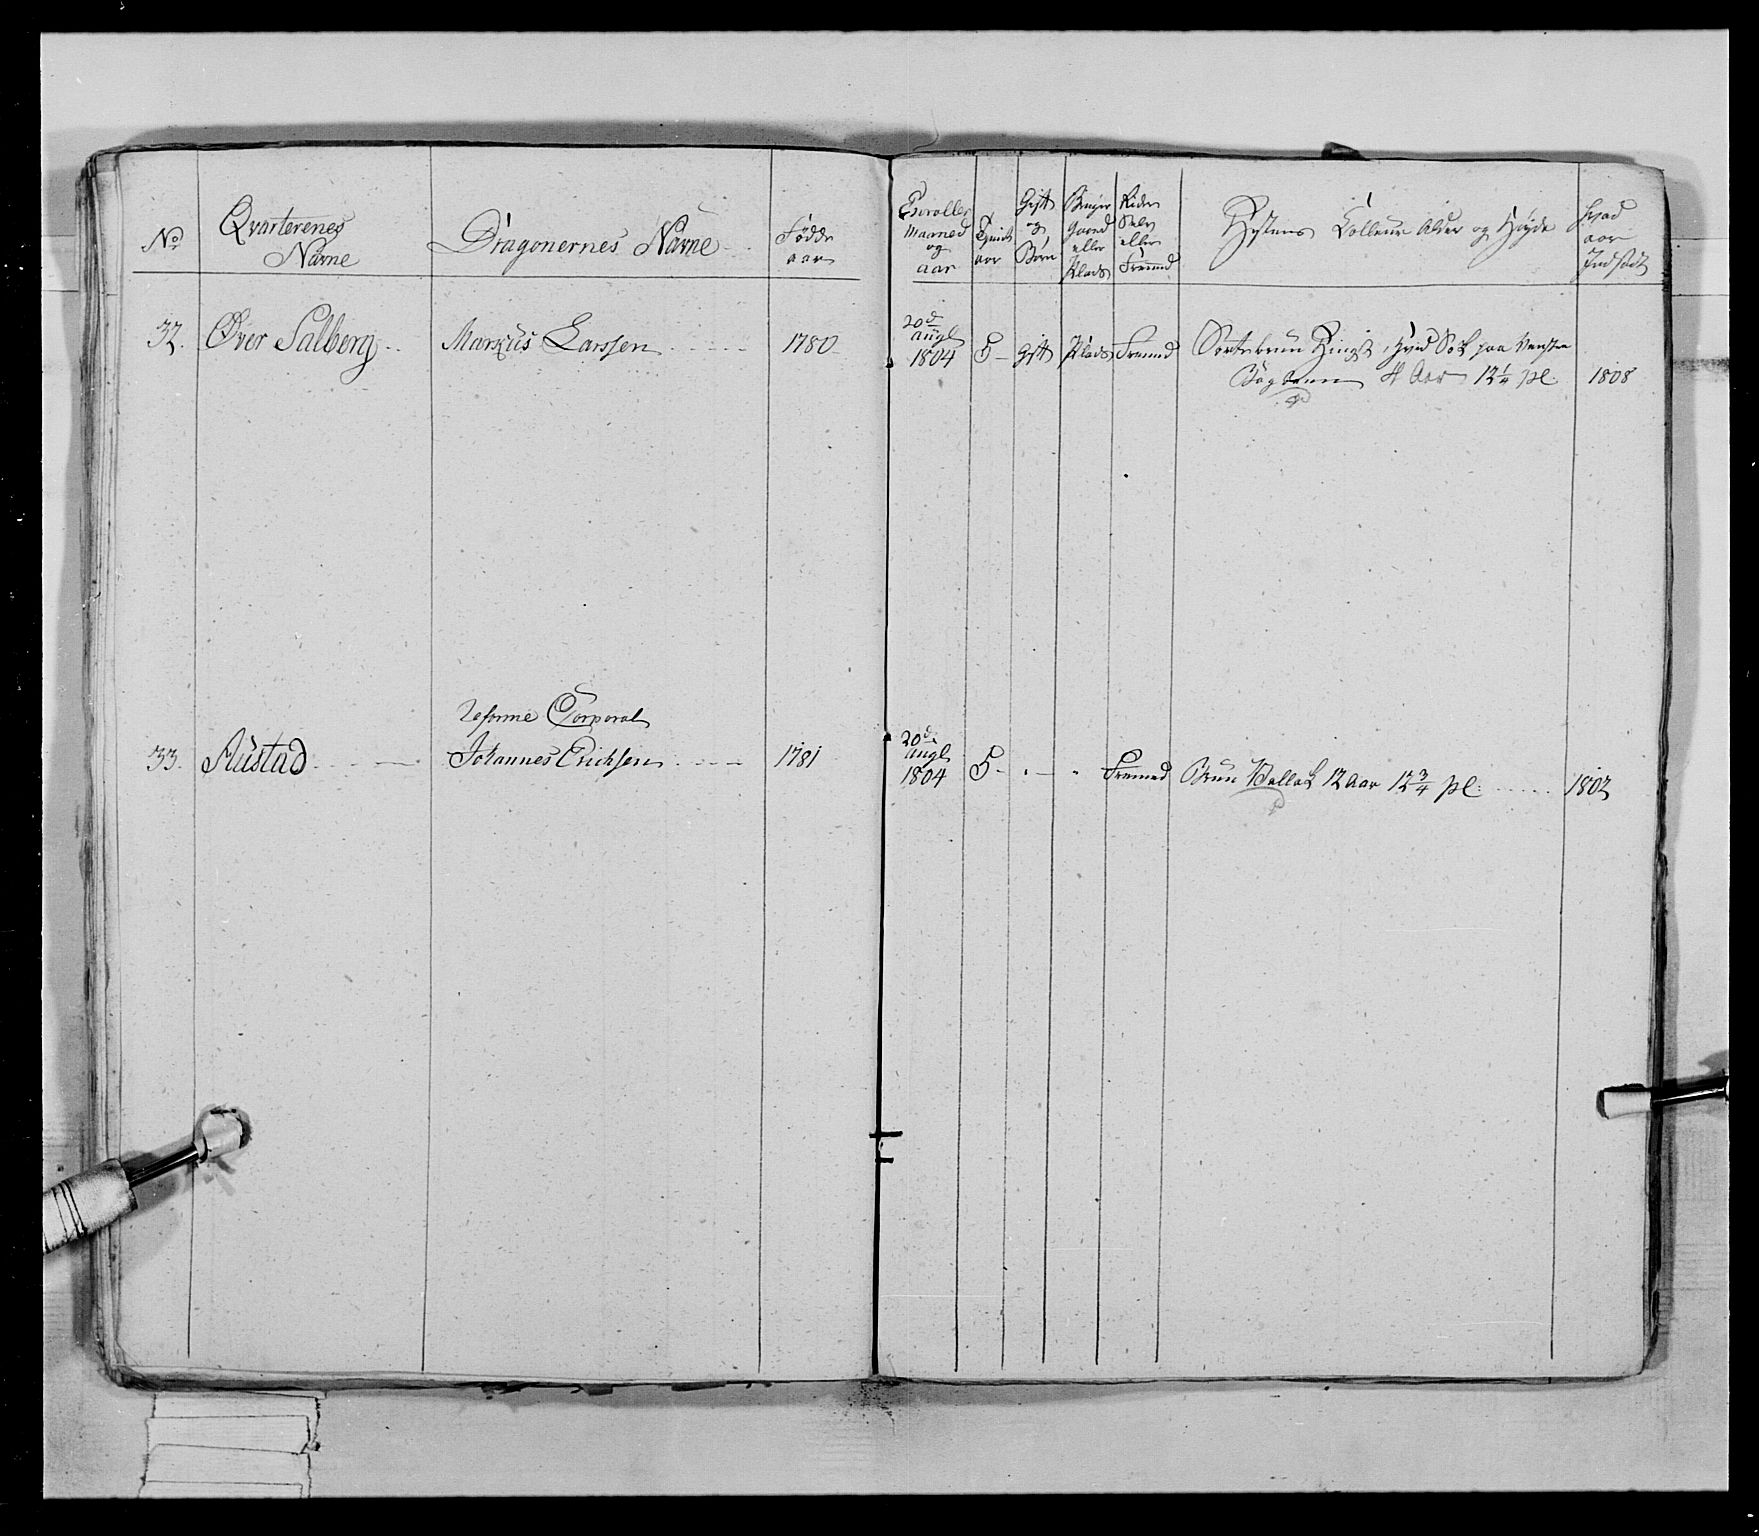 No
Qvarterenes
Navne
Dragonernes Navne
Fødde
aar
Enrollee
Maaned
og
aar
Tieniste
aar
Gift
og
Børn
Bruger
Gaard
eller
Plads
Rider
Selv
eller
Fremmed
Hestens Couleur Alder og Høyde
Hvad
aar
Indsadt
32. Øver Salberg
Markus Larssen
1780
20de
Augl
1804
5
Gift
Plads
Fremed
Sortebrun Hingst, Hvid Sok paa Venstre
Bagbeen 4 Aar 12 1/4 pl
1808
33. Austad
Reforme Corporal
Johannes Erichsen
1781
20de
Augl
1804
5
Fremed
Brun Vallak 12 Aar 12 3/4 pl.
1802